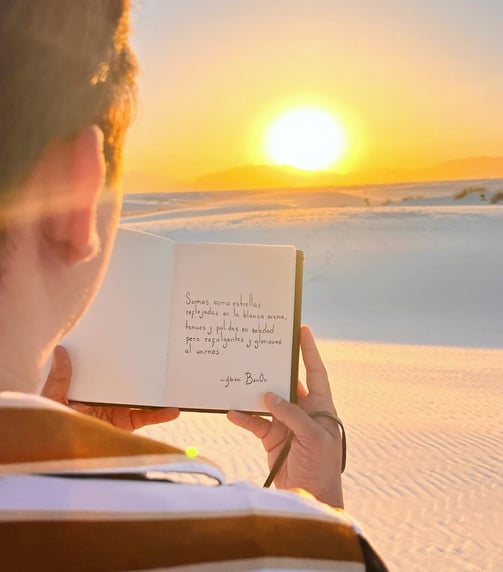 Somos como estrellas
reflejadas en la blanca arena,
tenues y palidas en soledad
pero refulgentes y gloriosas
al unirnos.